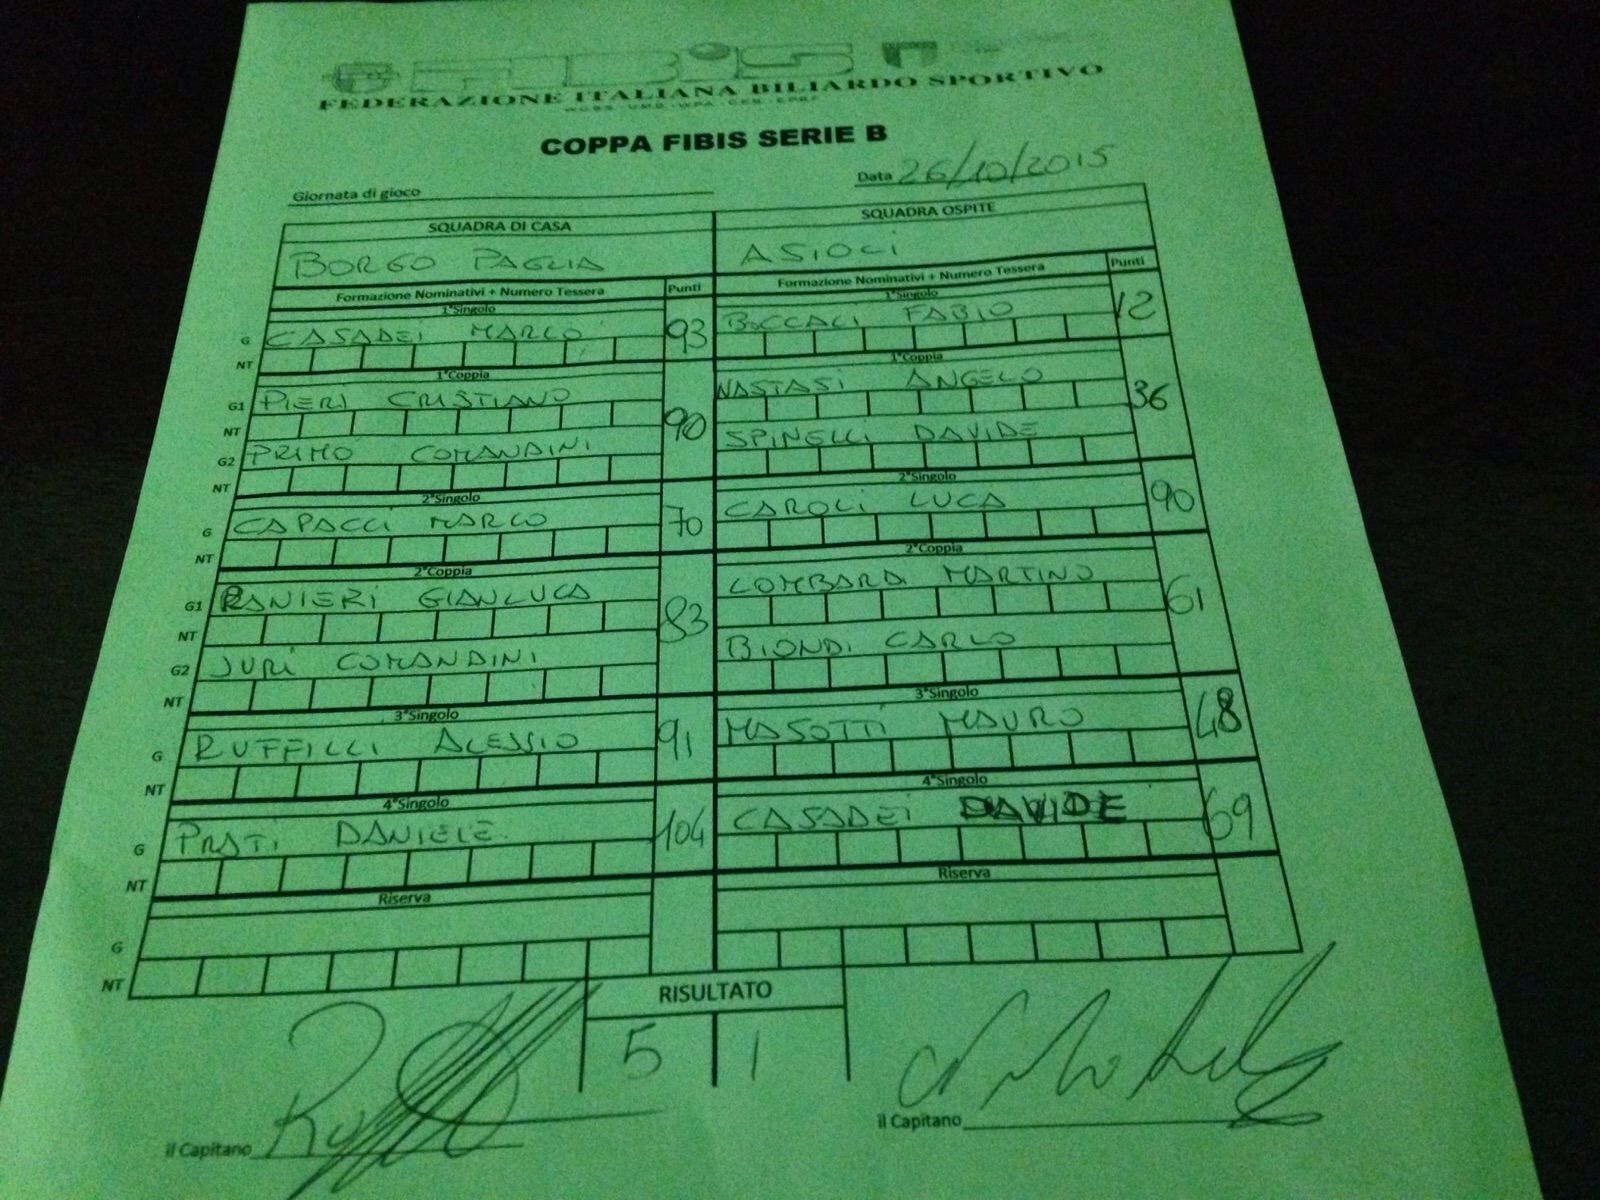 FIBiS
FEDERAZIONE ITALIANA BILIARDO SPORTIVO
COPPA FIBIS SERIE B
Giornata di gioco Data 26/10/2015
SQUADRA DI CASA SQUADRA OSPITE
BORGO PAGLIA ASIOLI
Formazione Nominativi + Numero Tessera Punti Formazione Nominativi + Numero Tessera Punti
1°Singolo 1°Singolo
G CASADEI MARCO 93 BOCCACI FABIO 12
NT
1°Coppia 1°Coppia
G1 PIERI CRISTIANO 90 NASTASI ANGELO 36
NT
G2 PRIMO COMANDINI SPINELLI DAVIDE
NT
2°Singolo 2°Singolo
G CAPACCI MARCO 70 CAROLI LUCA 90
NT
2°Coppia 2°Coppia
G1 RANIERI GIANLUCA 83 LOMBARDI MARTINO 61
NT
G2 JURI COMANDINI BIONDI CARLO
NT
3°Singolo 3°Singolo
G RUFFILLI ALESSIO 91 MASOTTI MAURO 48
NT
4°Singolo 4°Singolo
G PRATI DANIELE 104 CASADEI DAVIDE 69
NT
Riserva Riserva
G
NT
RISULTATO
5 1
il Capitano il Capitano